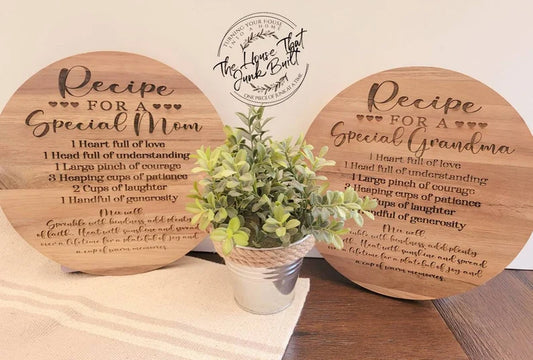 TURNING YOUR HOUSE
INTO A HOME
The House That
Junk Built
ONE PIECE OF JUNK AT A TIME
Recipe
FOR A
Special Mom
1 Heart full of love
1 Head full of understanding
1 Large pinch of courage
3 Heaping cups of patience
2 Cups of laughter
1 Handful of generosity
Mix well
Sprinkle with kindness add plenty
of faith. Heat with sunshine and spread
over a lifetime for a plateful of joy and
a cup of warm memories.
Recipe
FOR A
Special Grandma
1 Heart full of love
1 Head full of understanding
1 Large pinch of courage
3 Heaping cups of patience
Cups of laughter
Handful of generosity
Mix well
Sprinkle with kindness add plenty
of faith. Heat with sunshine and spread
over a lifetime for a plateful of joy and
a cup of warm memories.